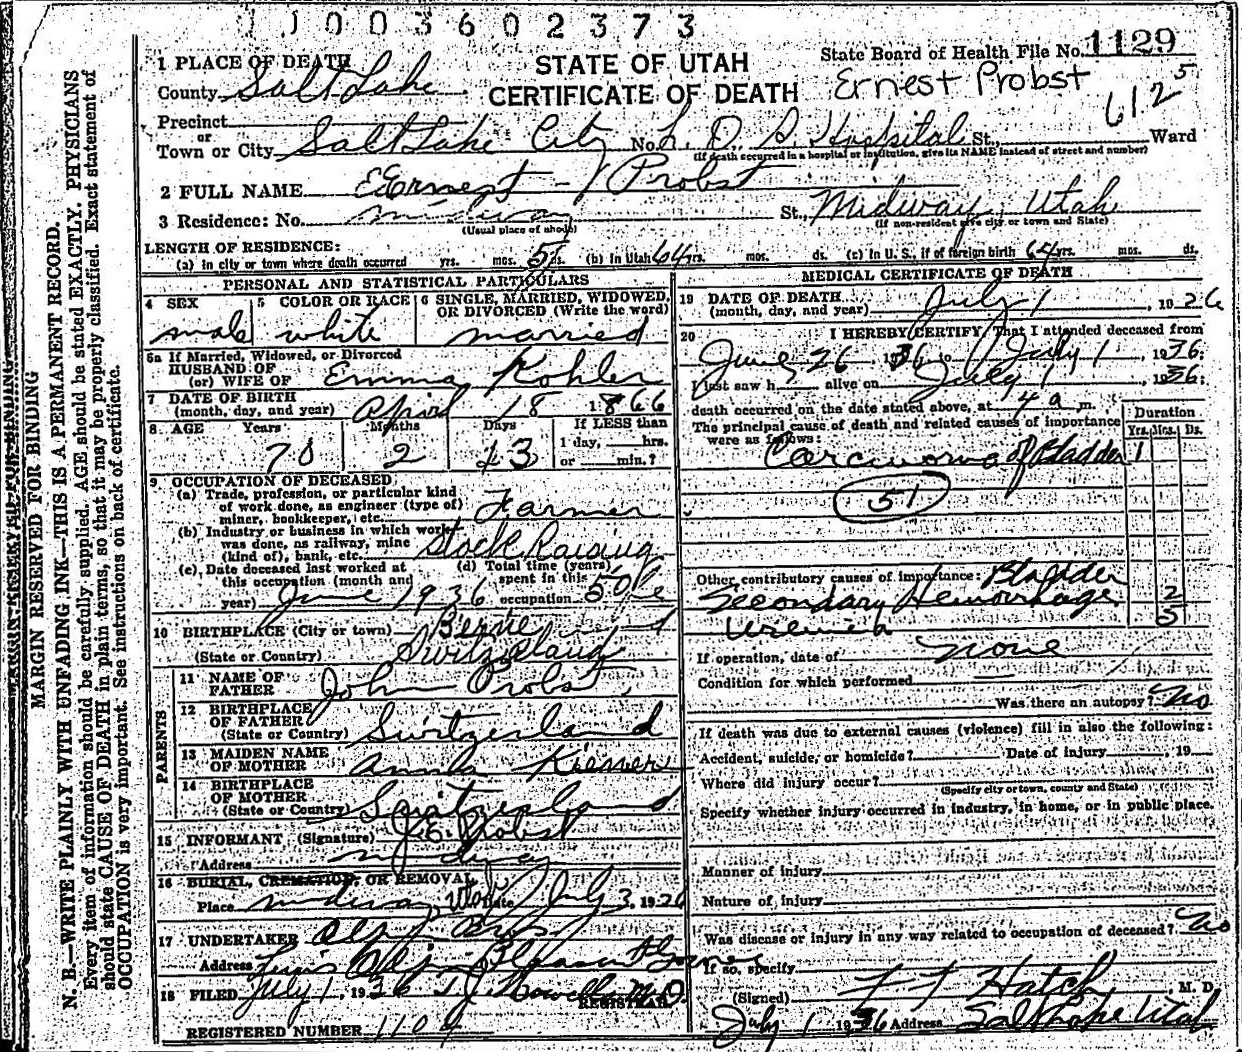 11003602373
STATE OF UTAH
CERTIFICATE OF DEATH
State Board of Health File No. 1129
Ernest Probst
6125
1 PLACE OF DEATH
County Salt Lake
Precinct
or
Town or City Salt Lake City No. L. D. S. Hospital St., Ward
(If death occurred in a hospital or institution, give its NAME instead of street and number)
2 FULL NAME Ernest Probst
3 Residence: No. midway St., Midway, Utah
(Usual place of abode) (If non-resident give city or town and State)
LENGTH OF RESIDENCE:
(a) In city or town where death occurred yrs. mos. 5 ds. (b) In Utah 64 yrs. mos. ds. (c) In U. S., if of foreign birth 64 yrs. mos. ds.
PERSONAL AND STATISTICAL PARTICULARS
4 SEX male
5 COLOR OR RACE white
6 SINGLE, MARRIED, WIDOWED, OR DIVORCED (Write the word) married
6a If Married, Widowed, or Divorced
HUSBAND OF
(or) WIFE OF Emma Kohler
7 DATE OF BIRTH
(month, day, and year) April 18 1866
8 AGE Years 70 Months 2 Days 13 If LESS than 1 day, hrs. or min.?
9 OCCUPATION OF DECEASED
(a) Trade, profession, or particular kind
of work done, as engineer (type of)
miner, bookkeeper, etc. Farmer
(b) Industry or business in which work
was done, as railway, mine
(kind of), bank, etc. Stock Raising
(c) Date deceased last worked at
this occupation (month and
year) June 1936
(d) Total time (years)
spent in this
occupation 50
10 BIRTHPLACE (City or town) Berne
(State or Country) Switzerland
PARENTS
11 NAME OF
FATHER John Probst
12 BIRTHPLACE
OF FATHER
(State or Country) Switzerland
13 MAIDEN NAME
OF MOTHER Anna Kiener
14 BIRTHPLACE
OF MOTHER
(State or Country) Switzerland
15 INFORMANT (Signature) J. E. Probst
Address midway
16 BURIAL, CREMATION, OR REMOVAL
Place midway, Utah Date July 3, 1926
17 UNDERTAKER Olpin Bros
Address Pleasant Grove
18 FILED July 1, 1936 M.D.
REGISTRAR
REGISTERED NUMBER 1104
MEDICAL CERTIFICATE OF DEATH
19 DATE OF DEATH
(month, day, and year) July 1, 1926
20 I HEREBY CERTIFY, That I attended deceased from
June 26 1936 to July 1, 1936:
I last saw h alive on July 1 1936:
death occurred on the date stated above, at 4 a m.
The principal cause of death and related causes of importance
were as follows:
Duration
Yrs. Mos. Ds.
Carcinoma of Bladder 1
51
Other contributory causes of importance: Bladder
Secondary Hemorrhage 2
Uremia 5
If operation, date of none
Condition for which performed
Was there an autopsy? no
If death was due to external causes (violence) fill in also the following:
Accident, suicide, or homicide? Date of injury 19
Where did injury occur?
(Specify city or town, county and State)
Specify whether injury occurred in industry, in home, or in public place.
Manner of injury
Nature of injury
Was disease or injury in any way related to occupation of deceased? no
If so, specify
(Signed) F F Hatch, M. D.
July 1 1936 Address Salt Lake Utah
MARGIN RESERVED FOR BINDING
N. B.—WRITE PLAINLY WITH UNFADING INK—THIS IS A PERMANENT RECORD.
Every item of information should be carefully supplied. AGE should be stated EXACTLY. PHYSICIANS
should state CAUSE OF DEATH in plain terms, so that it may be properly classified. Exact statement of
OCCUPATION is very important. See instructions on back of certificate.